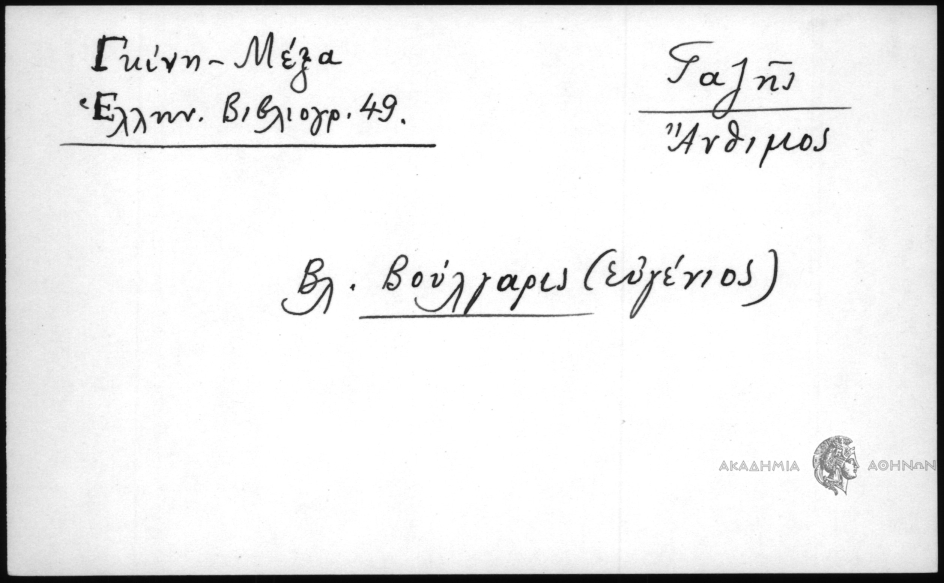 Γκίνη - Μέξα
Ἑλλην. Βιβλιογρ. 49.
Γαζῆς
Ἄνθιμος
Βλ. Βούλγαρις (Εὐγένιος)
ΑΚΑΔΗΜΙΑ ΑΘΗΝΩΝ